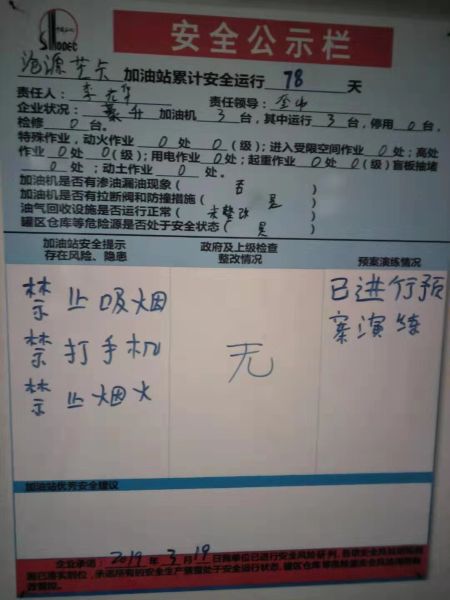 SINODEC
安全公示栏
加油站累计安全运行 78 天
责任人: 责任领导:
企业状况: 加油机 3 台,其中运行 3 台,停用 0 台,
检修 0 台。
特殊作业,动火作业 0 处 0 (级);进入受限空间作业 0 处;高处
作业 0 处 0 (级);用电作业 0 处;起重作业 0 处 0 (级)盲板抽堵
0 处;动土作业 0 处。
加油机是否有渗油漏油现象( 否 )
加油机是否有拉断阀和防撞措施( 是 )
油气回收设施是否运行正常( 未整改 )
罐区仓库等危险源是否处于安全状态( 是 )
加油站安全提示
存在风险、隐患
政府及上级检查
整改情况
预案演练情况
禁止吸烟
禁打手机
禁止烟火
无
已进行预
案演练
加油站优秀安全建议
企业承诺: 2019 年 3 月 19 日我单位已进行安全风险研判,